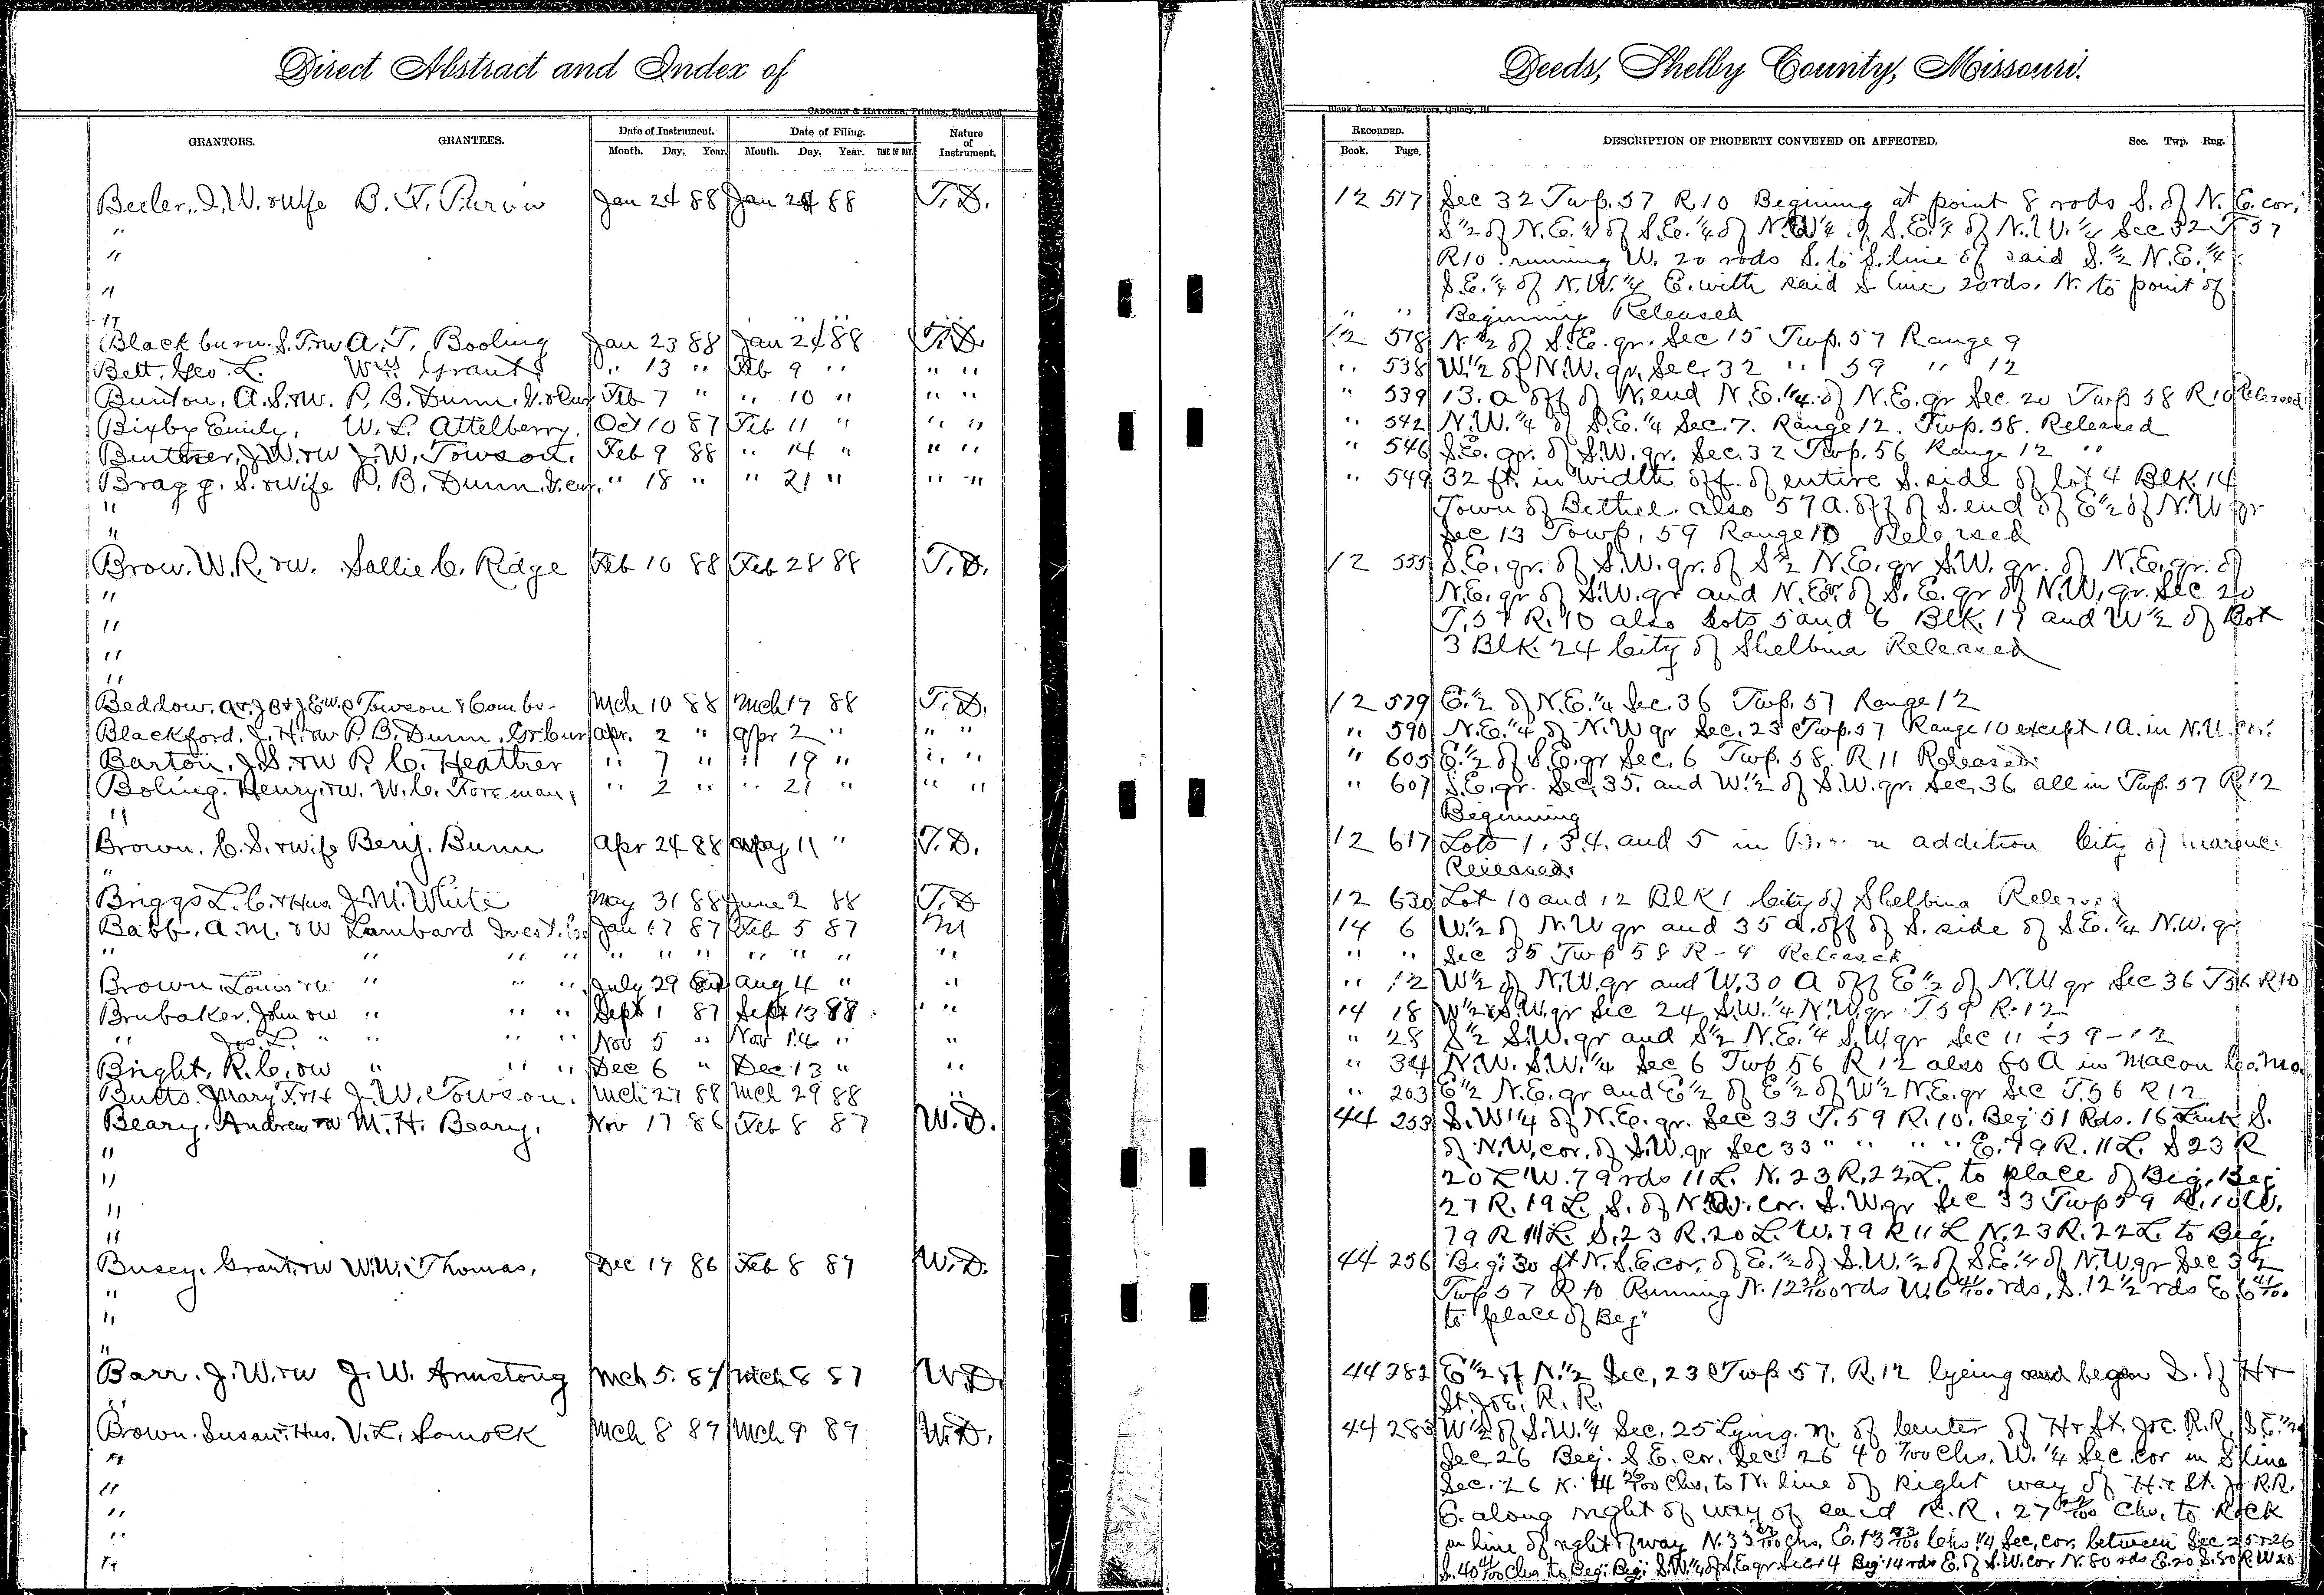 Direct Abstract and Index of
Deeds, Shelby County, Missouri.
CADOGAN & HATCHER, Printers, Binders and
Blank Book Manufacturers, Quincy, Ill
GRANTORS. GRANTEES. Date of Instrument. Date of Filing. Nature of Instrument.
Month. Day. Year. Month. Day. Year. TIME OF DAY.
RECORDED. DESCRIPTION OF PROPERTY CONVEYED OR AFFECTED. Sec. Twp. Rng.
Book. Page.
Beeler. J. W. & Wife B. F. Purvin Jan 24 88 Jan 24 88 T.D. 12 517 Sec 32 Twp. 57 R 10 Begining at point 8 rods S. of N. E. cor.
" S 1/2 of N.E. 1/4 of S.E. 1/4 of N.W 1/4 of S.E. 1/4 of N.W. 1/4 Sec 32 T 57
" R 10 running W. 20 rods S. to S. line of said S. 1/2 N.E. 1/4
" S.E. 1/4 of N.W. 1/4 E. with said S line 20 rds. N. to point of
" " " Beginning Released
Blackburn. S. T. & W A. T. Booling Jan 23 88 Jan 24 88 T.D. 12 518 N. 1/2 of S.E. qr. Sec 15 Twp. 57 Range 9
Bett. Geo. L. Wm Grant " 13 " Feb 9 " " " " 538 W. 1/2 of N.W. qr. Sec. 32 " 59 " 12
Bunton, A. S. & W. P. B. Dunn, Feb 7 " " 10 " " " " 539 13. a off of N. end N.E. 1/4 of N.E. qr Sec. 20 Twp 58 R 10 Released
Bixby Emily, W. L. Attelberry. Oct 10 87 Feb 11 " " " " 542 N.W. 1/4 of S.E. 1/4 Sec. 7. Range 12. Twp. 58. Released
J.W. & W J. W. Towson. Feb 9 88 " 14 " " " " 546 S.E. qr. of S.W. qr. Sec. 32 Twp. 56 Range 12 "
Bragg. S. & Wife P. B. Dunn, " 18 " " 21 " " " " 549 32 ft. in width off. of entire S. side of lot 4 Blk. 14
" Town of Bethel. also 57 A. off of S. end of E 1/2 of N.W qr
" Sec 13 Towp, 59 Range 10 Released
Brow. W. R. & W. Sallie C. Ridge Feb 10 88 Feb 28 88 T.D. 12 555 S.E. qr. of S.W. qr. of S 1/2 N.E. qr S.W. qr. of N.E. qr. of
" N.E. qr of S.W. qr and N.E. of S.E. qr of N.W. qr. Sec 20
" T. 57 R. 10 also Lots 5 and 6 Blk. 17 and W 1/2 of Lot
" 3 Blk. 24 City of Shelbina Released
"
Beddow. Towson & Combs. Mch 10 88 Mch 17 88 T.D. 12 579 E. 1/2 of N.E. 1/4 Sec. 36 Twp. 57 Range 12
Blackford. J. H. & W P. B. Dunn, Apr. 2 " Apr 2 " " " " 590 N.E. 1/4 of N.W qr Sec. 23 Twp. 57 Range 10 except 1 A. in N.W cor.
Barton. J. S. & W R. C. Heather " 7 " " 19 " " " " 605 E. 1/2 of S.E. qr Sec. 6 Twp. 58. R 11 Released.
Boling. Henry & W. W. C. Foreman, " 2 " " 21 " " " " 607 S.E. qr. Sec. 35. and W. 1/2 of S.W. qr. Sec. 36 all in Twp. 57 R. 12
" Beginning
Brown. C. S. & Wife Benj. Bunn Apr 24 88 May 11 " T.D. 12 617 Lots 1. 3. 4. and 5 in addition City of Clarence
" Released.
Briggs L. C. & Hus. J. M. White May 31 88 June 2 88 T.D 12 630 Lot 10 and 12 BLK 1 City of Shelbina Released
Babb. A. M. & W Lambard Invest. Co Jan 17 87 Feb 5 87 M 14 6 W. 1/2 of N.W qr and 35 a. off of S. side of S.E. 1/4 N.W. qr
" " " " " " " " " " " " " Sec 35 Twp 58 R-9 Released
Brown, Louis & W " " " July 29 87 Aug 4 " " " 12 W 1/2 of N.W. qr and W. 30 A off E 1/2 of N.W qr Sec 36 T 56 R 10
Brubaker. John & W " " " Sept 1 87 Sept 13 88 " 14 18 W 1/2 S.W. qr Sec 24 S.W. 1/4 N.W. qr T 59 R. 12
" Jos. L. " " " Nov 5 " Nov 14 " " " 28 S 1/2 S.W. qr and S 1/2 N.E. 1/4 S.W. qr Sec 11 - 59 - 12
Bright. R. C. & W " " " Dec 6 " Dec 13 " " " 34 N.W. S.W. 1/4 Sec 6 Twp 56 R 12 also 80 A in Macon Co. Mo.
Butts. Mary F. & H J. W. Towson. Mch 27 88 Mch 29 88 " " 203 E 1/2 N.E. qr and E 1/2 of E 1/2 of W 1/2 N.E. qr Sec T. 56 R 12
Beary. Andrew & W M. H. Beary. Nov 17 86 Feb 8 87 W.D. 44 253 S.W 1/4 of N.E. qr. Sec 33 T. 59 R. 10. Beg 51 Rds. 16 Link S.
" of N.W. cor. of S.W. qr Sec 33 " " " " E. 79 R. 11 L. S 23 R
" 20 L W. 79 rds 11 L. N. 23 R. 22 L. to place of Beg. Beg
" 27 R. 19 L. S. of N.W. cor. S.W. qr Sec 33 Twp 59 R. 10 W.
" 79 R 11 L. S. 23 R. 20 L. W. 79 R 11 L N. 23 R. 22 L. to Beg.
Busey. Grant & W W. W. Thomas, Dec 17 86 Feb 8 87 W.D. 44 256 Beg. 30 ft N. S.E. cor. of E. 1/2 of S.W. 1/2 of S.E. 1/4 of N.W. qr Sec 32
" Twp 57 R 10 Running N. 12 rds W. 6 41/100 rds, S. 12 1/2 rds E 6 41/100
" to place of Beg.
"
Barr. J. W. & W J. W. Armstong Mch 5. 87 Mch 8 87 W.D. 44 282 E 1/2 of N. 1/2 Sec, 23 Twp 57. R. 12 lyeing S. of H &
" St. Joe. R. R.
Brown. Susan & Hus. V. L. Mch 8 87 Mch 9 87 W.D. 44 283 W 1/2 of S.W. 1/4 Sec. 25 Lying. N. of Center of H & St. Joe. R.R. S.E. 1/4
" Sec 26 Beg. S.E. cor. Sec. 26 40 Chs. W. 1/4 Sec. cor in S line
" Sec. 26 N. 14 Chs. to N. line of Right way of H. & St. Jo R.R.
" E. along right of way of said R.R. 27 Chs. to Rock
" on line of right of way N. 33 chs. E. 13 Chs 1/4 Sec. cor. between Sec 25 & 26
" S. 40 Chs to Beg. Beg. S.W. 1/4 of S.E qr Sec 14 Beg. 14 rds E. of S.W. cor N. 80 rds E. 20 S. 80 R W 20